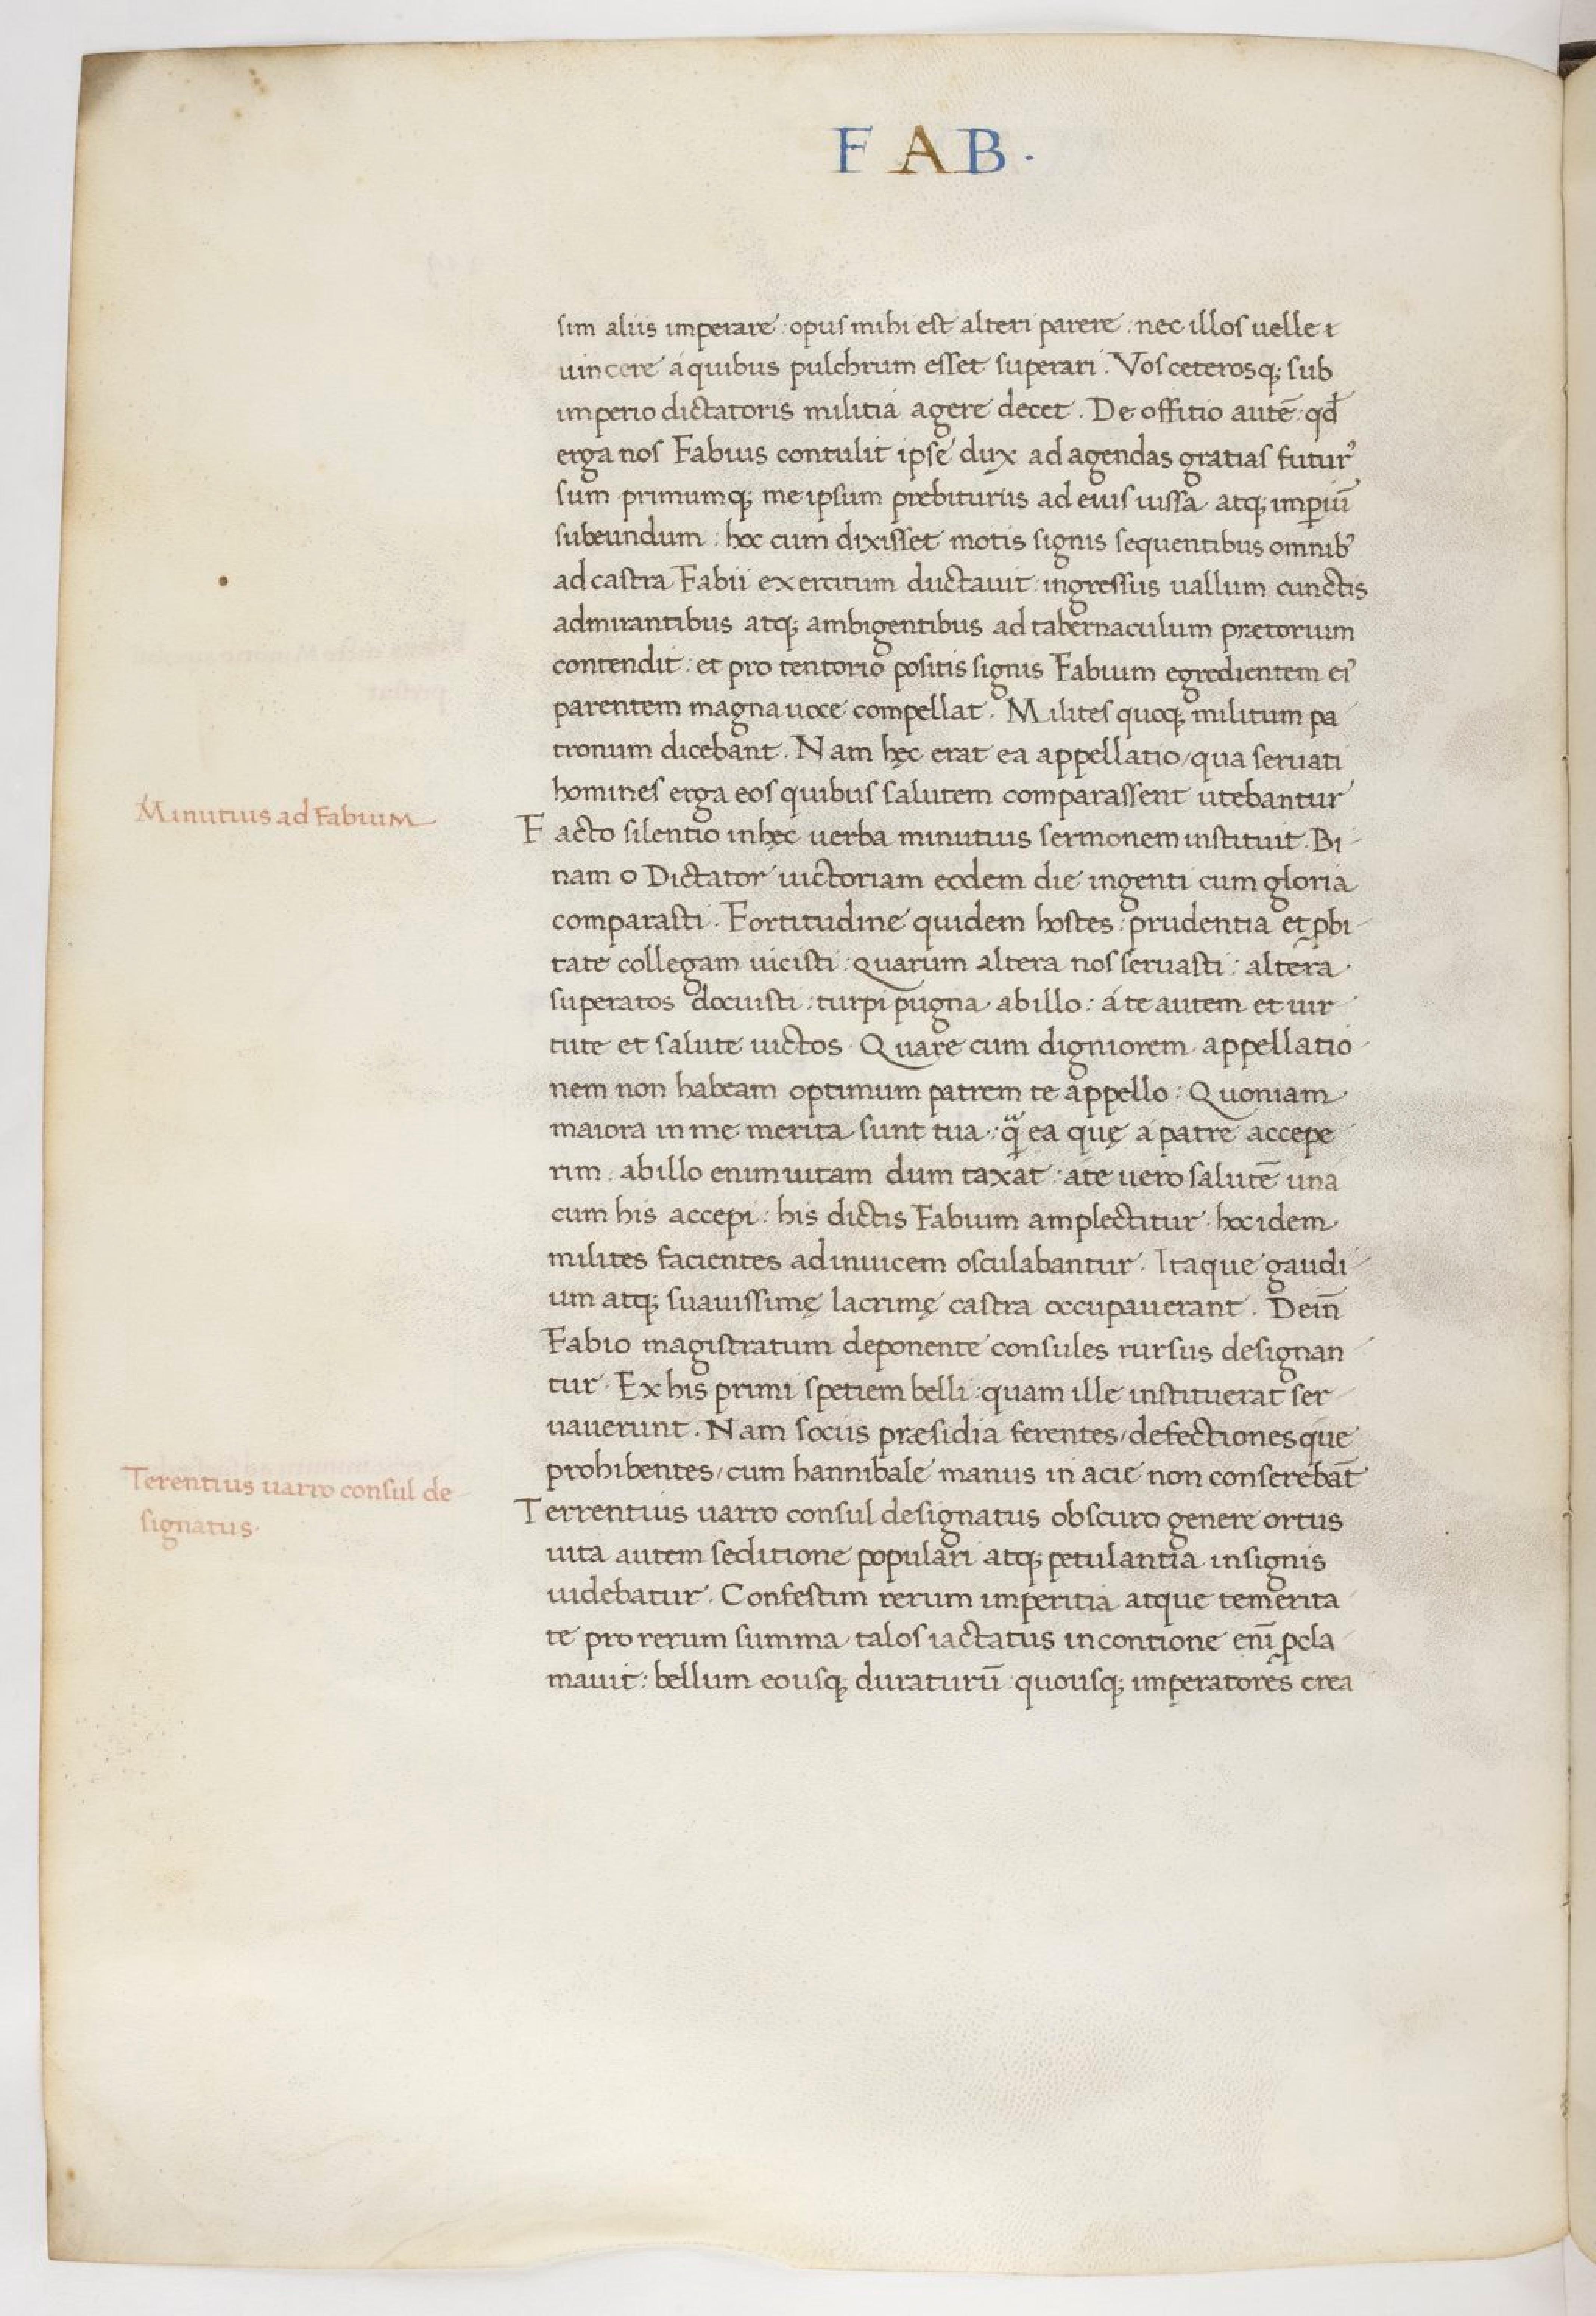 FAB·
sim aliis imperare : opus mihi est alteri parere : nec illos uelle
uincere á quibus pulchrum esset superari . Vos ceterosq; sub
imperio dictatoris militiá agere decet . De offitio autē : qđ
erga nos Fabius contulit ipse dux ad agendas gratias futurꝰ
sum primumq; me ipsum prebiturus ad eius iussa atq; imꝑiū
subeundum : hoc cum dixisset motis signis sequentibus omnibꝰ
ad castra Fabii exercitum ductauit : ingressus uallum cunctis
admirantibus atq; ambigentibus ad tabernaculum prætorium
contendit : et pro tentorio positis signis Fabium egredientem eꝰ
parentem magna uoce compellat . Milites quoq; militum pa
tronum dicebant . Nam hęc erat ea appellatio / qua seruati
homines erga eos quibus salutem comparassent utebantur
Minutius ad Fabium
Facto silentio in hęc uerba minutius sermonem instituit . Bi-
nam o Dictator uictoriam eodem die ingenti cum gloria
comparasti . Fortitudine quidem hostes : prudentia et ꝓbi-
tate collegam uicisti : Quarum altera nos seruasti : altera
superatos docuisti : turpi pugna ab illo : á te autem et uir-
tute et salute uictos . Quare cum digniorem appellatio-
nem non habeam optimum patrem te appello : Quoniam
maiora in me merita sunt tua : q̈̃ ea quę á patre accepe
rim : ab illo enim uitam dum taxat : áte uero salutē una
cum his accepi : his dictis Fabium amplectitur : hoc idem
milites facientes adinuicem osculabantur . Itaque gaudi-
um atq; suauissimę lacrimę castra occupauerant . Dein̄
Fabio magistratum deponente consules rursus designan-
tur . Ex his primi spetiem belli : quam ille instituerat ser-
uauerunt . Nam sociis præsidia ferentes / defectionesque
prohibentes / cum hannibale manus in acie non conserebāt
Terentius uarro consul de
signatus·
Terrentius uarro consul designatus obscuro genere ortus
uita autem seditione populari atq; petulantia insignis
uidebatur . Confestim rerum imperitia atque temerita-
te pro rerum summa talos iactatus in contione eni̅ ꝓcla-
mauit : bellum eousq; duraturū : quousq; imperatores crea